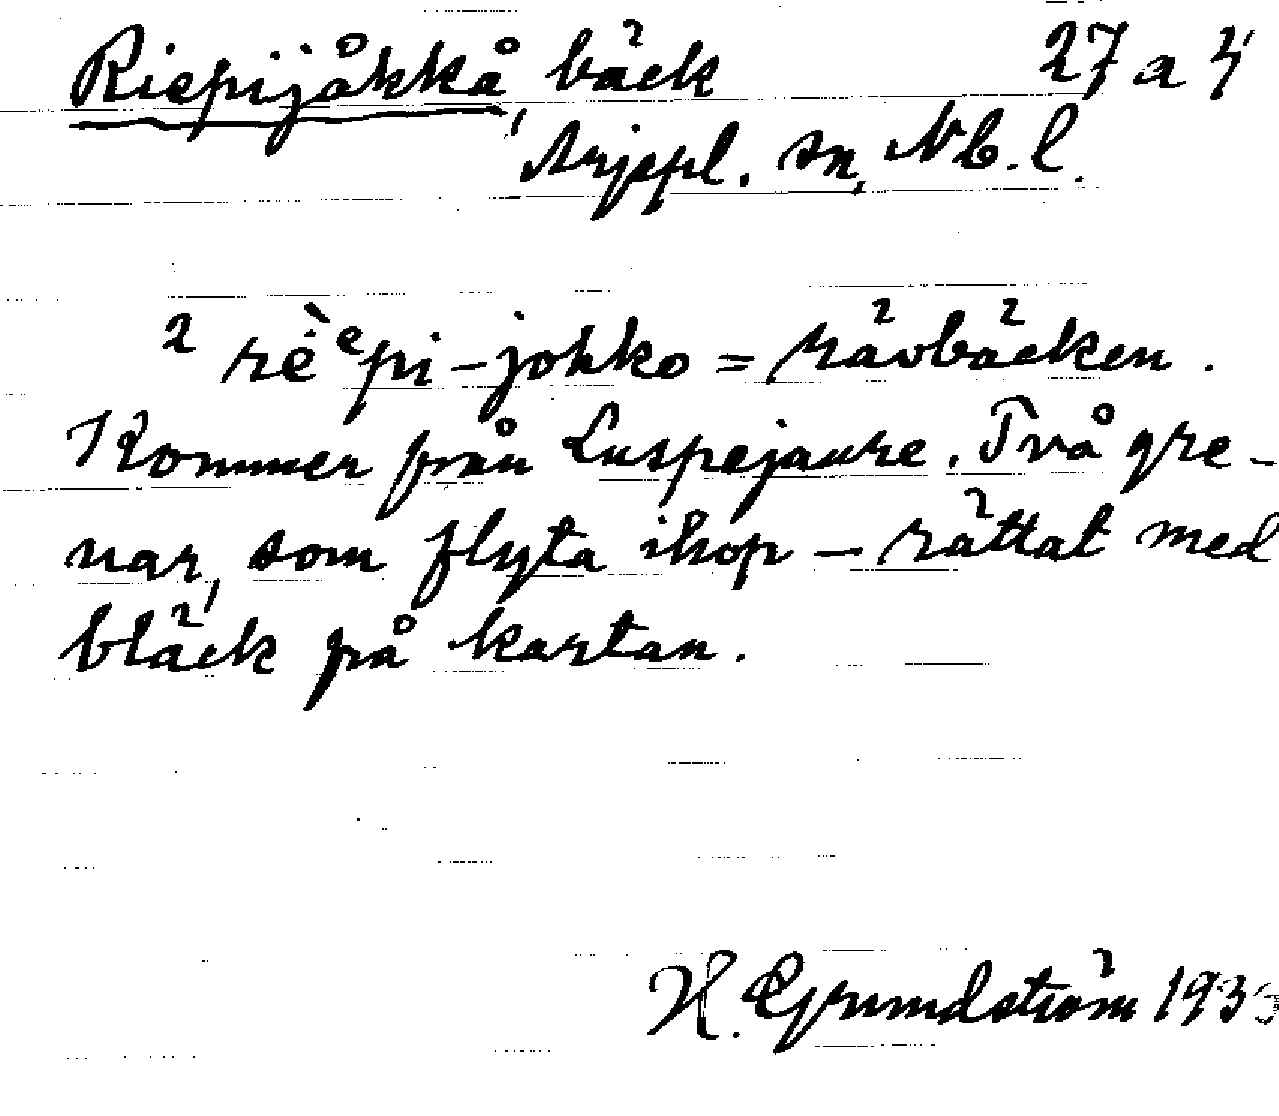 Riepijåkkå, bäck 27 a 4
Arjeppl. sn, Nb. l.
2 rèᵉpi-jokko = rävbäcken.
Kommer från Luspejaure. Två gre-
nar, som flyta ihop – rättat med
bläck på kartan.
H. Grundström 1933